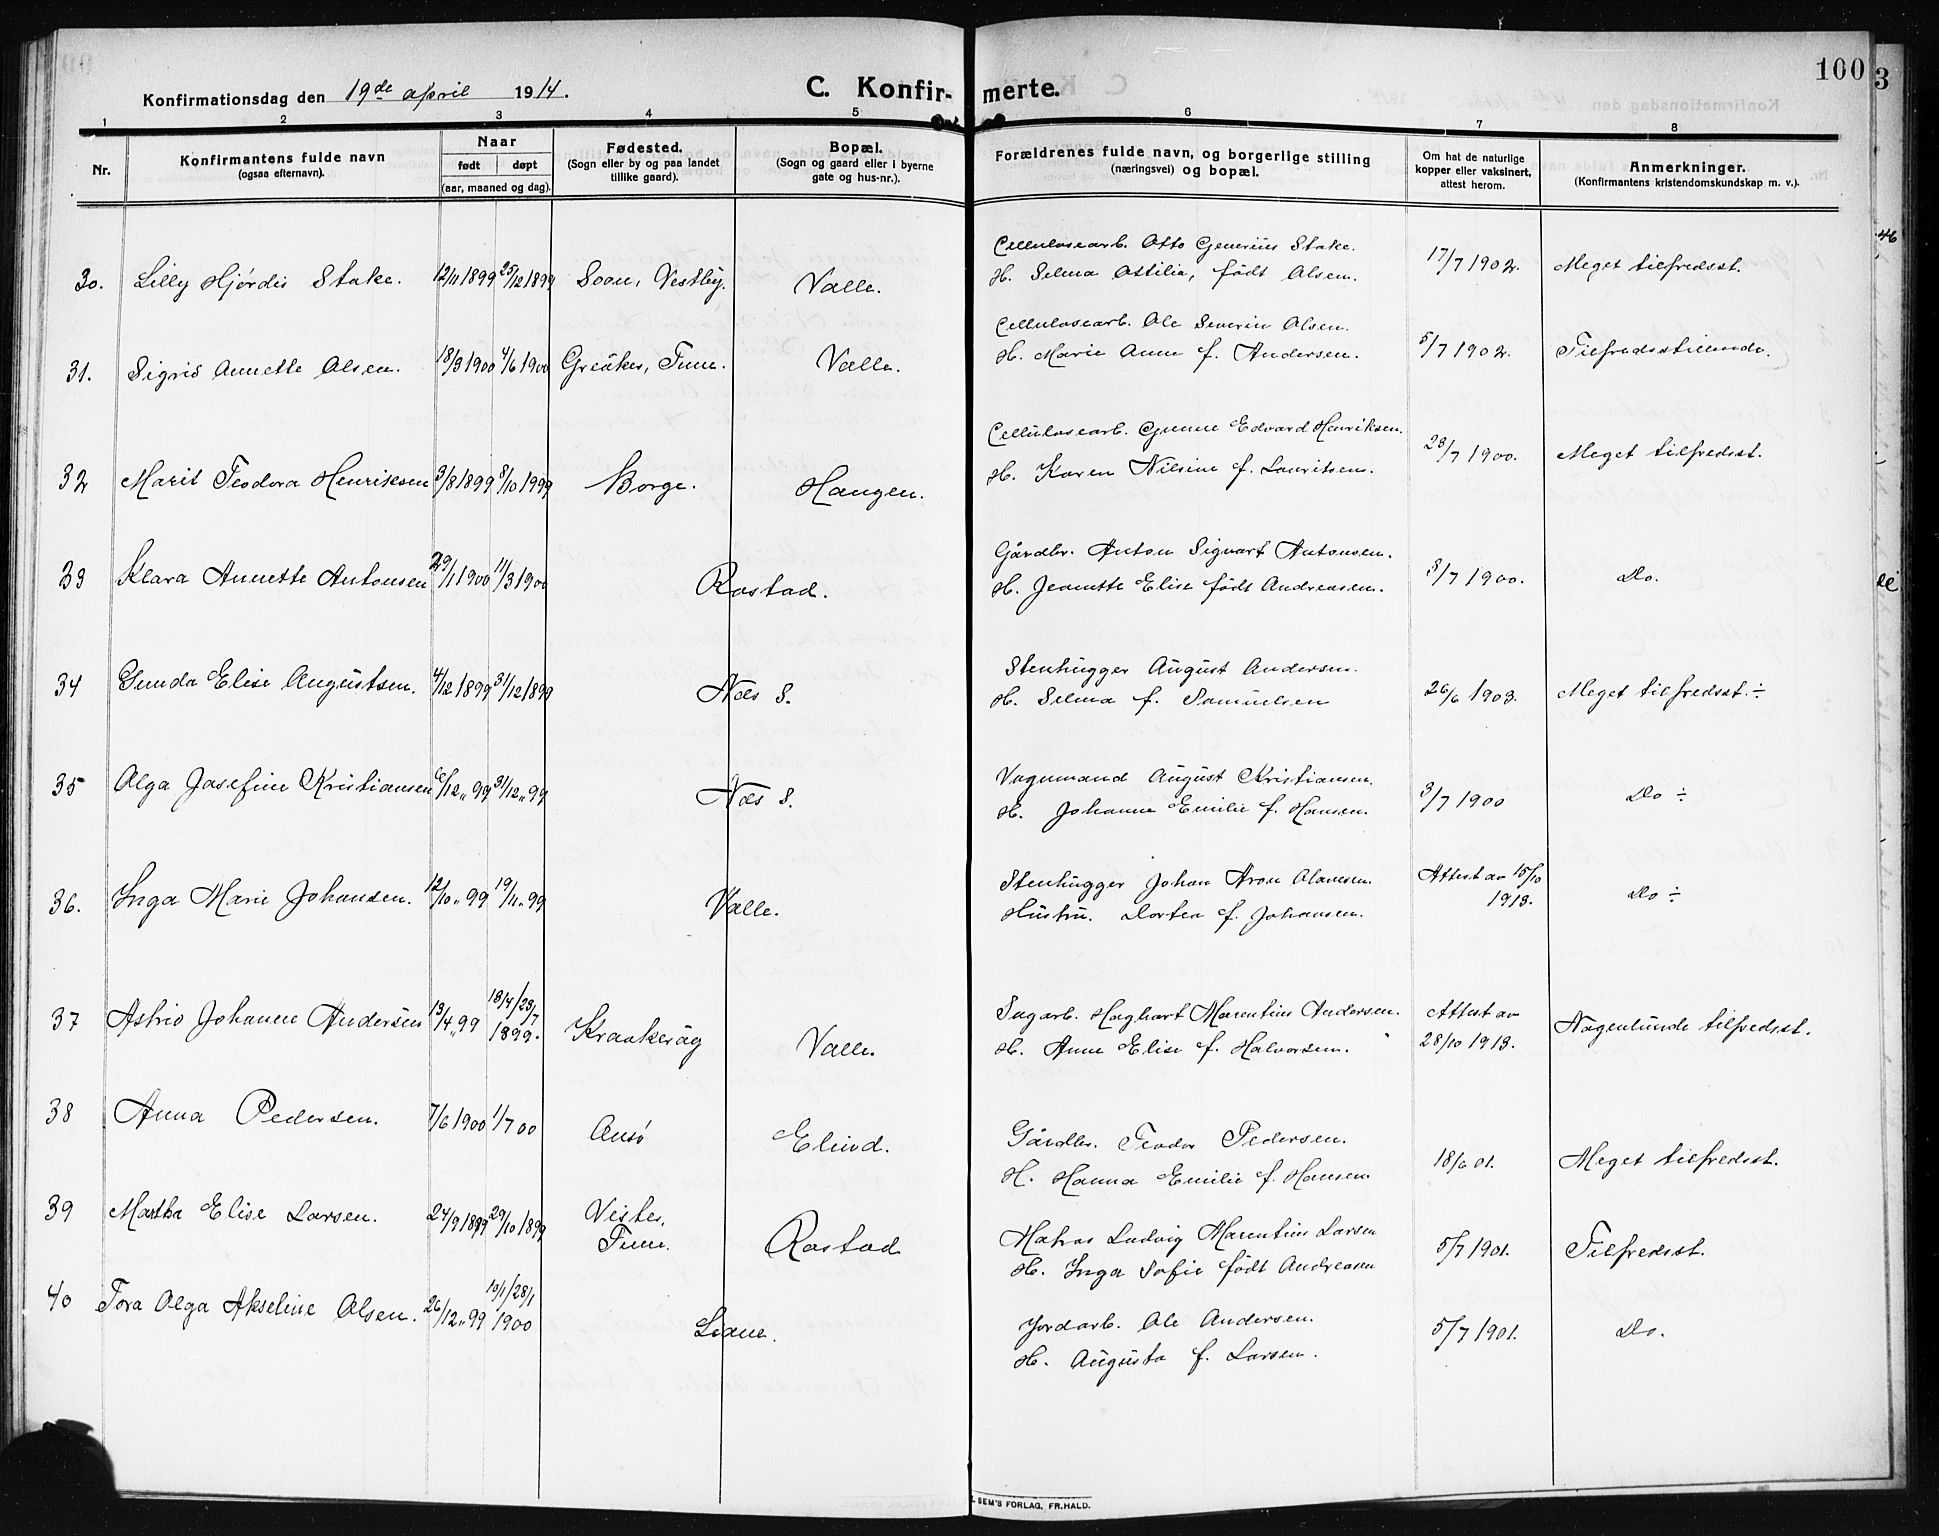 Konfirmationsdag den 19de april 1914.
C. Konfirmerte.
100
3
1 2 3 4 5 6 7 8
Nr.
Konfirmantens fulde navn
(ogsaa efternavn).
Naar
født døpt
(aar, maaned og dag).
Fødested.
(Sogn eller by og paa landet
tillike gaard).
Bopæl.
(Sogn og gaard eller i byerne
gate og hus-nr.).
Forældrenes fulde navn, og borgerlige stilling
(næringsvei) og bopæl.
Om hat de naturlige
kopper eller vaksinert,
attest herom.
Anmerkninger.
(Konfirmantens kristendomskundskap m. v.).
30. Lilly Hjørdis Stake. 12/11 1899 25/12 1899 Soon, Vestby. Valle.
Cellulosearb. Otto Generius Stake.
H. Selma Ottilia, født Olsen.
17/7 1902. Meget tilfredsst.
31. Sigrid Annette Olsen. 18/3 1900 4/6 1900 Greåker, Tune. Valle.
Cellulosearb. Ole Severin Olsen.
H. Marie Anne f. Andersen.
5/7 1902. Tilfredsstillende.
32 Marit Teodora Henriksen 3/8 1899 8/10 1999 Borge. Haugen.
Cellulosearb. Gunne Edvard Henriksen.
H. Karen Nilsine f. Lauritsen.
28/7 1900. Meget tilfredsst.
33 Klara Annette Antonsen 29/1 1900 11/3 1900 Rostad.
Gårdbr. Anton Sigvart Antonsen.
H. Jeanette Elise født Andreasen.
3/7 1900. Do.
34 Gunda Elise Augustsen. 4/12 1899 31/12 1899 Næs S.
Stenhugger August Andersen.
H. Selma f. Samuelsen
26/6 1903. Meget tilfredsst. ÷
35 Olga Josefine Kristiansen 6/12 " 99 31/12 " 99 Næs S.
Vognmand August Kristiansen.
H. Johanne Emilie f. Hansen.
3/7 1900 Do ÷
36. Inga Marie Johansen. 12/10 " 99 19/11 " 99 Valle.
Stenhugger Johan Aron Olavesen.
Hustru. Dortea f. Johansen.
Attest av 15/10
1913.
Do ÷
37 Astrid Johanne Andersen 13/4 " 99 18/4/23/7
1899.
Kraakerøy Valle.
Sagarb. Hagbart Marentius Andersen.
H. Anne Elise f. Halvorsen.
Attest av
28/10 1913.
Nogenlunde tilfredsst.
38 Anna Pedersen. 7/6 1900 1/7 00 Onsø Elind.
Gårdbr. Teodor Pedersen.
H. Hanna Emilie f. Hansen.
18/6 01. Meget tilfredsst.
39 Martha Elise Larsen. 24/9 1899 29/10 1899 Vister,
Tune.
Rostad
Matros Ludvig Marentius Larsen
H. Inga Sofie født Andreasen
5/7 1901. Tilfredsst.
40 Tora Olga Akseline Olsen. 26/12 " 99 10/1/28/1
1900
Liane.
Jordarb. Ole Andersen.
H. Augusta f. Larsen.
5/7 1901. Do.
SEM'S FORLAG, FR.HALD.